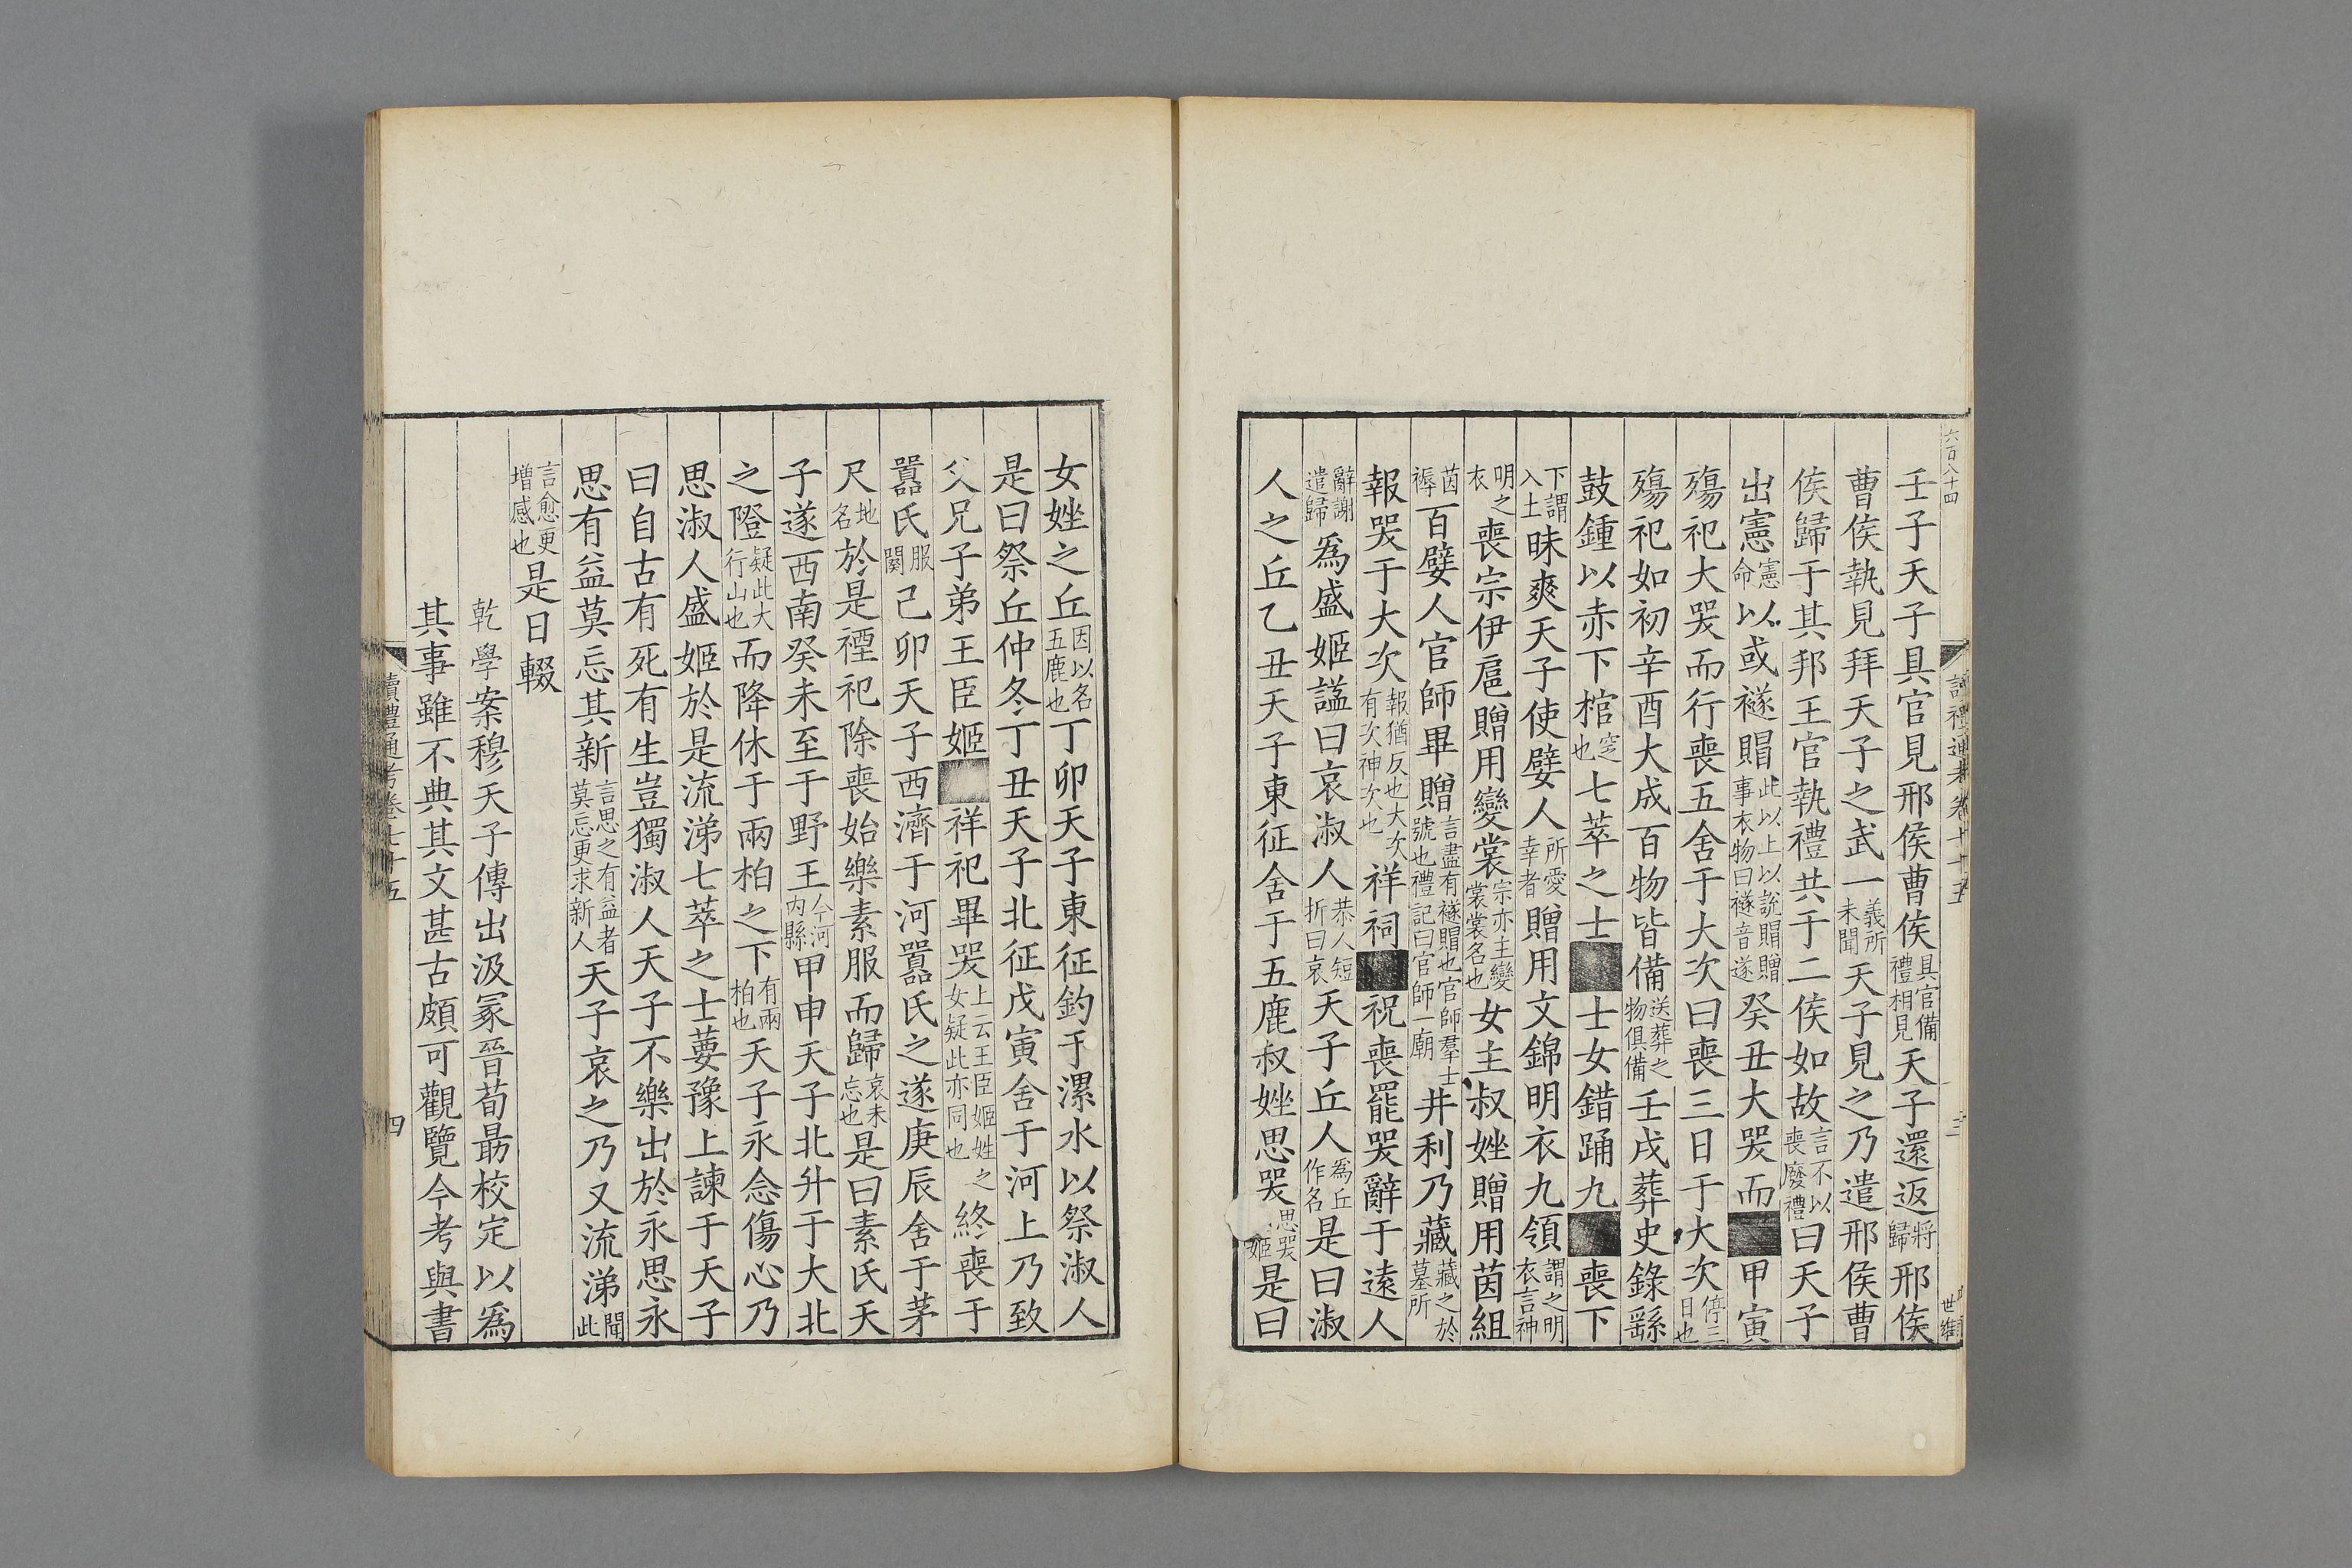 六百八十四
壬子天子具官見邢侯曹侯具官備禮相見天子還返將歸邢侯
曹侯執見拜天子之武一義所未聞天子見之乃遣邢侯曹
侯歸于其邦王官執禮共于二侯如故言不以喪廢禮曰天子
出憲憲命以或襚賵此以上以說賵贈事衣物曰襚音遂癸丑大哭而■甲寅
殤祀大哭而行喪五舍于大次曰喪三日于大次停三日也
殤祀如初辛酉大成百物皆備送葬之物俱備壬戌葬史錄繇
鼓鍾以赤下棺窆也七萃之士■士女錯踊九■喪下
下謂入土昧爽天子使嬖人所愛幸者贈用文錦明衣九領謂之明衣言神
明之衣喪宗伊扈贈用變裳宗亦主變裳裳名也女主叔㛗贈用茵組
茵褥百嬖人官師畢贈言盡有襚賵也官師羣士號也禮記曰官師一廟井利乃藏藏之於墓所
報哭于大次報猶反也大次有次神次也祥祠■祝喪罷哭辭于遠人
辭謝遣歸為盛姬謚曰哀淑人恭人短折曰哀天子丘人為丘作名是曰淑
人之丘乙丑天子東征舍于五鹿叔㛗思哭思哭姬是曰
女㛗之丘因以名五鹿也丁卯天子東征釣于漯水以祭淑人
是曰祭丘仲冬丁丑天子北征戊寅舍于河上乃致
父兄子弟王臣姬■祥祀畢哭上云王臣姬姓之女疑此亦同也終喪于
囂氏服闋己卯天子西濟于河囂氏之遂庚辰舍于茅
尺地名於是禋祀除喪始樂素服而歸哀未忘也是曰素氏天
子遂西南癸未至于野王今河內縣甲申天子北升于大北
之隥疑此大行山也而降休于兩柏之下有兩柏也天子永念傷心乃
思淑人盛姬於是流涕七萃之士葽豫上諫于天子
曰自古有死有生豈獨淑人天子不樂出於永思永
思有益莫忘其新言思之有益者莫忘更求新人天子哀之乃又流涕聞此
言愈更增感也是日輟
乾學案穆天子傳出汲冢晉荀勗校定以為
其事雖不典其文甚古頗可觀覽今考與書
讀禮通考卷七十五
四